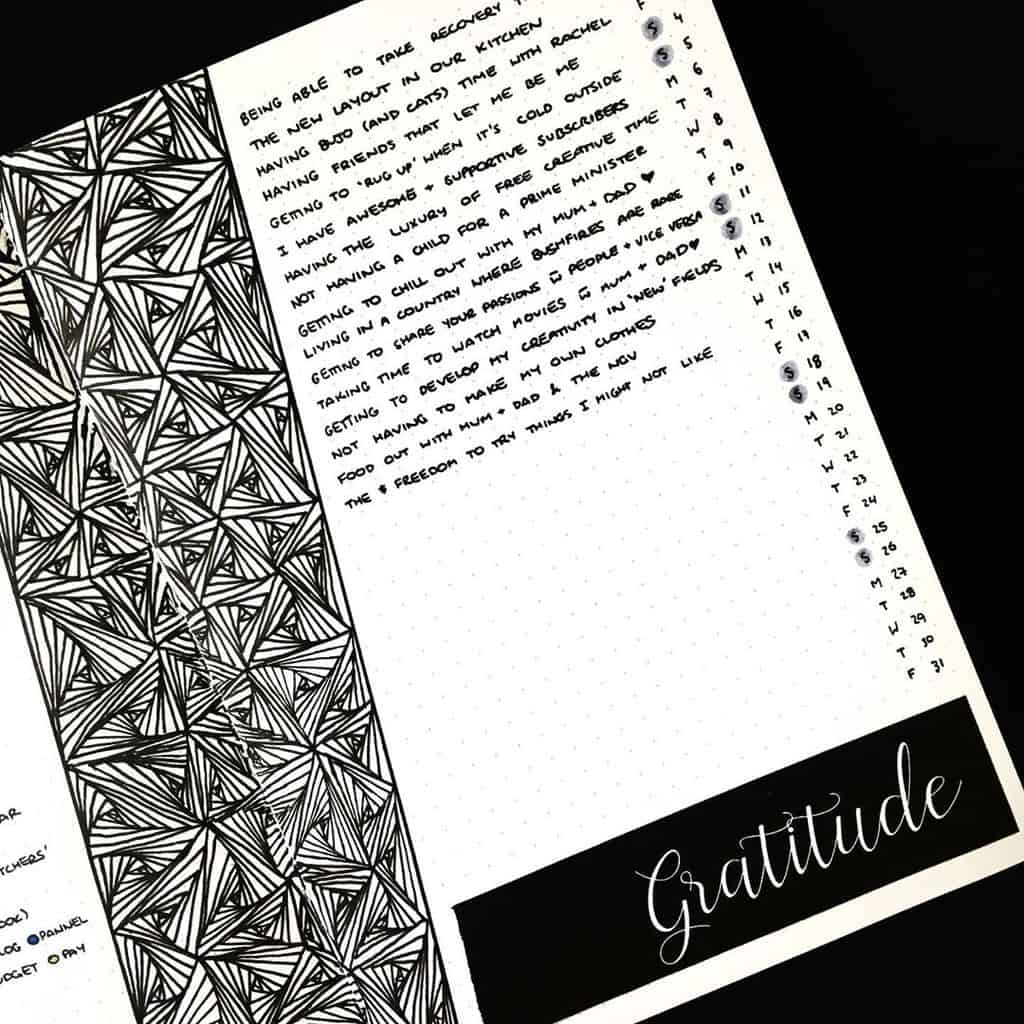 BEING ABLE TO TAKE RECOVERY
THE NEW LAYOUT IN OUR KITCHEN
HAVING BUJO (AND CATS) TIME WITH RACHEL F
HAVING FRIENDS THAT LET ME BE ME S 4
GETTING TO 'RUG UP' WHEN IT'S COLD OUTSIDE S 5
I HAVE AWESOME + SUPPORTIVE SUBSCRIBERS M 6
HAVING THE LUXURY OF FREE CREATIVE TIME T 7
NOT HAVING A CHILD FOR A PRIME MINISTER W 8
GETTING TO CHILL OUT WITH MY MUM + DAD ♥ T 9
LIVING IN A COUNTRY WHERE BUSHFIRES ARE RARE F 10
GETTING TO SHARE YOUR PASSIONS W̄ PEOPLE + VICE VERSA S 11
TAKING TIME TO WATCH MOVIES W̄ MUM + DAD ♥ S 12
GETTING TO DEVELOP MY CREATIVITY IN 'NEW' FIELDS M 13
NOT HAVING TO MAKE MY OWN CLOTHES T 14
FOOD OUT WITH MUM + DAD & THE NGV W 15
THE FREEDOM TO TRY THINGS I MIGHT NOT LIKE T 16
F 17
S 18
S 19
M 20
T 21
W 22
T 23
F 24
S 25
S 26
M 27
T 28
W 29
T 30
F 31
Gratitude
AR
TCHERS'
OOK)
LOG PANNEL
UDGET PAY